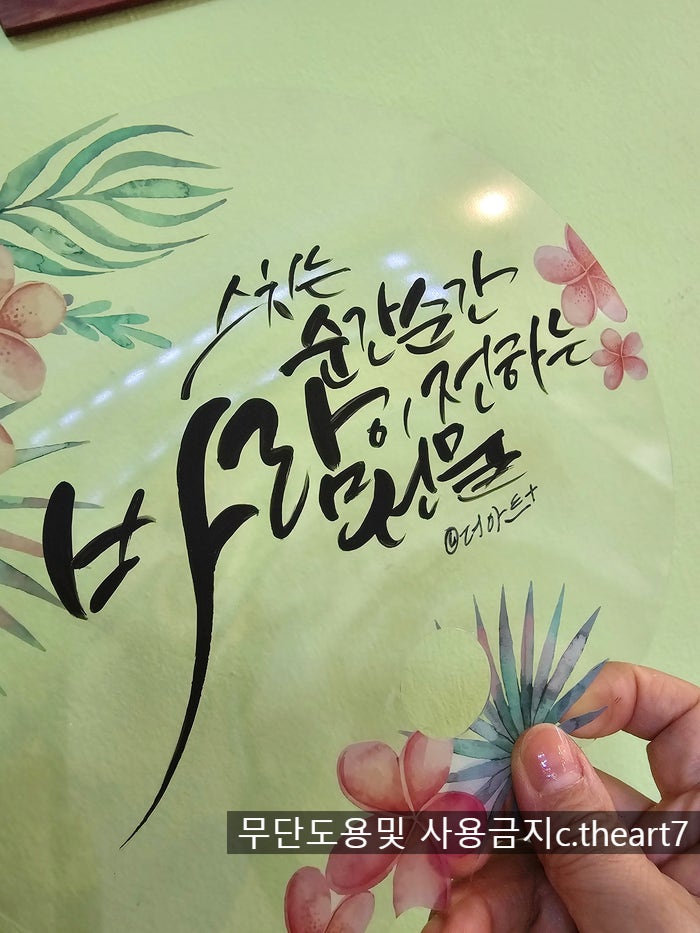 스치는
순간순간
바람이 전하는
선물
@더아트+
무단도용및 사용금지c.theart7